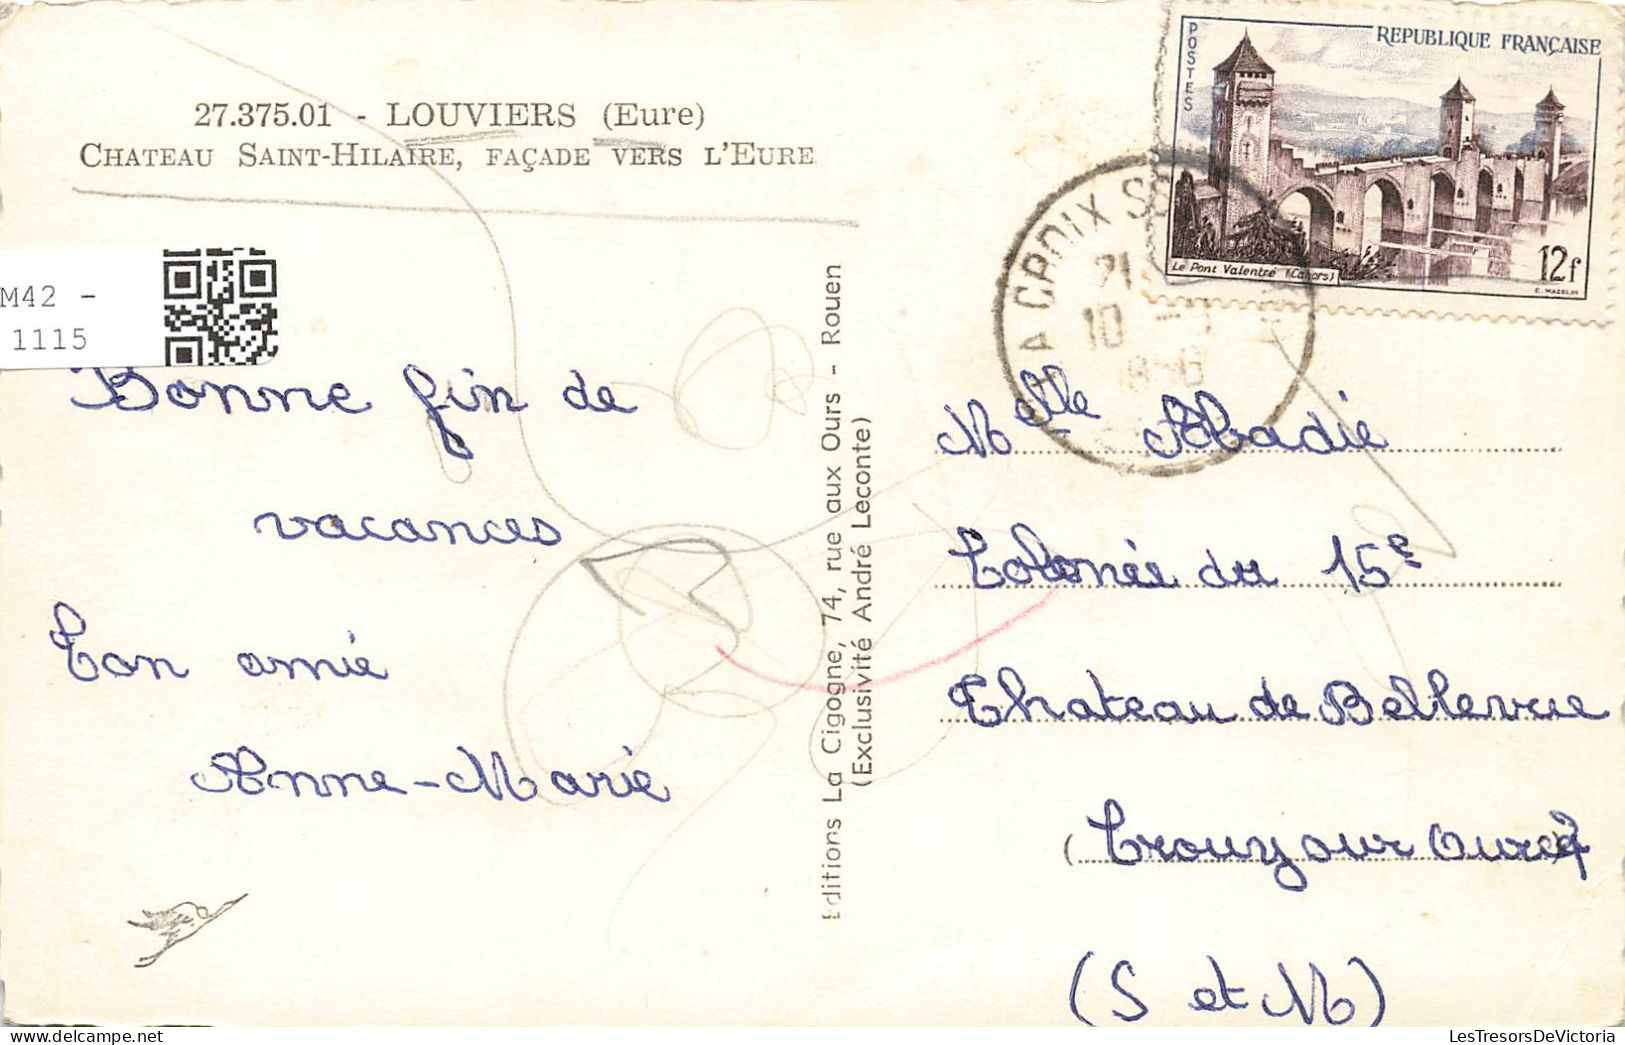 27.375.01 - LOUVIERS (Eure)
CHATEAU SAINT-HILAIRE, FAÇADE VERS L'EURE
M42 -
1115
Bonne fin de
vacances
Ton amie
Anne-Marie
Editions La Cigogne, 74, rue aux Ours - Rouen
(Exclusivité André Leconte)
POSTES
REPUBLIQUE FRANÇAISE
Le Pont Valentré (Cahors)
12f
C. MAZELIN
LA CROIX
21
10
Melle Abadie
Colonie du 15e
Chateau de Bellevue
Crouy sur Ourcq
(S et M)
LesTresorsDeVictoria.com